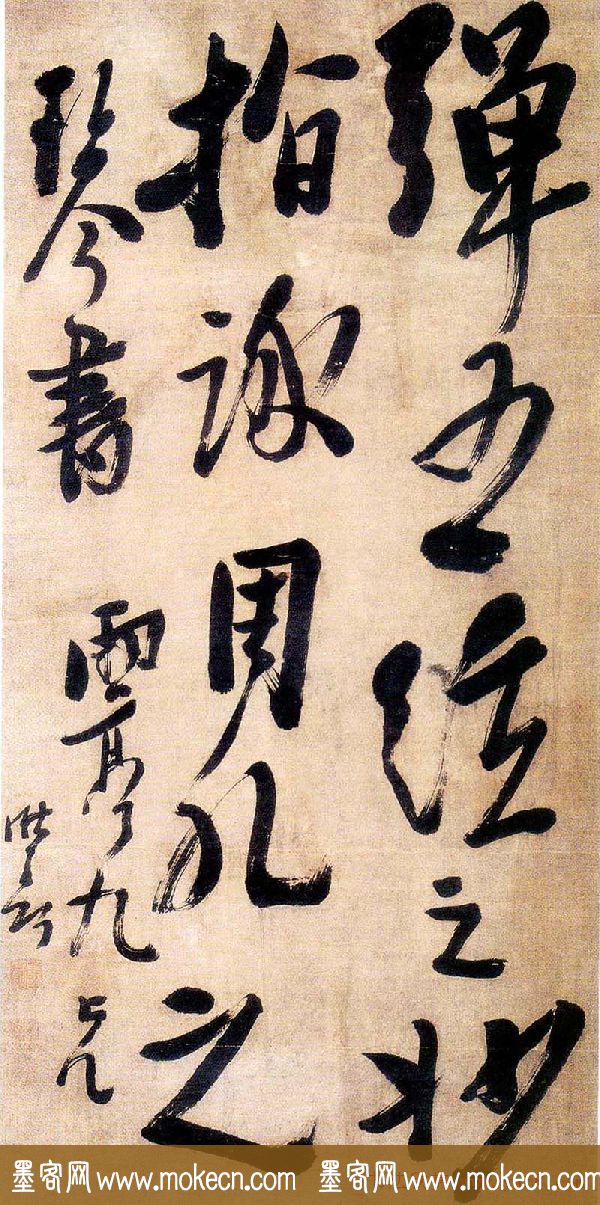 彈五弦之妙
指詠周孔之
琴書
亭九兄
墨客网 www.mokecn.com 墨客网 www.mokecn.com